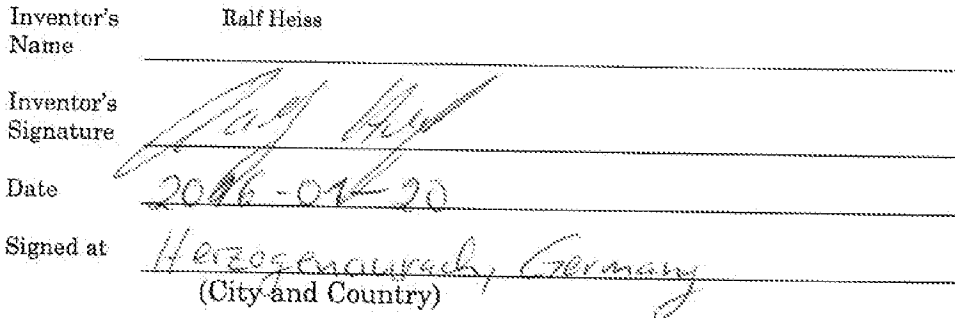 Inventor's Name Ralf Heiss
Inventor's Signature Ralf Heiss
Date 2016-01-20
Signed at Herzogenaurach, Germany
(City and Country)